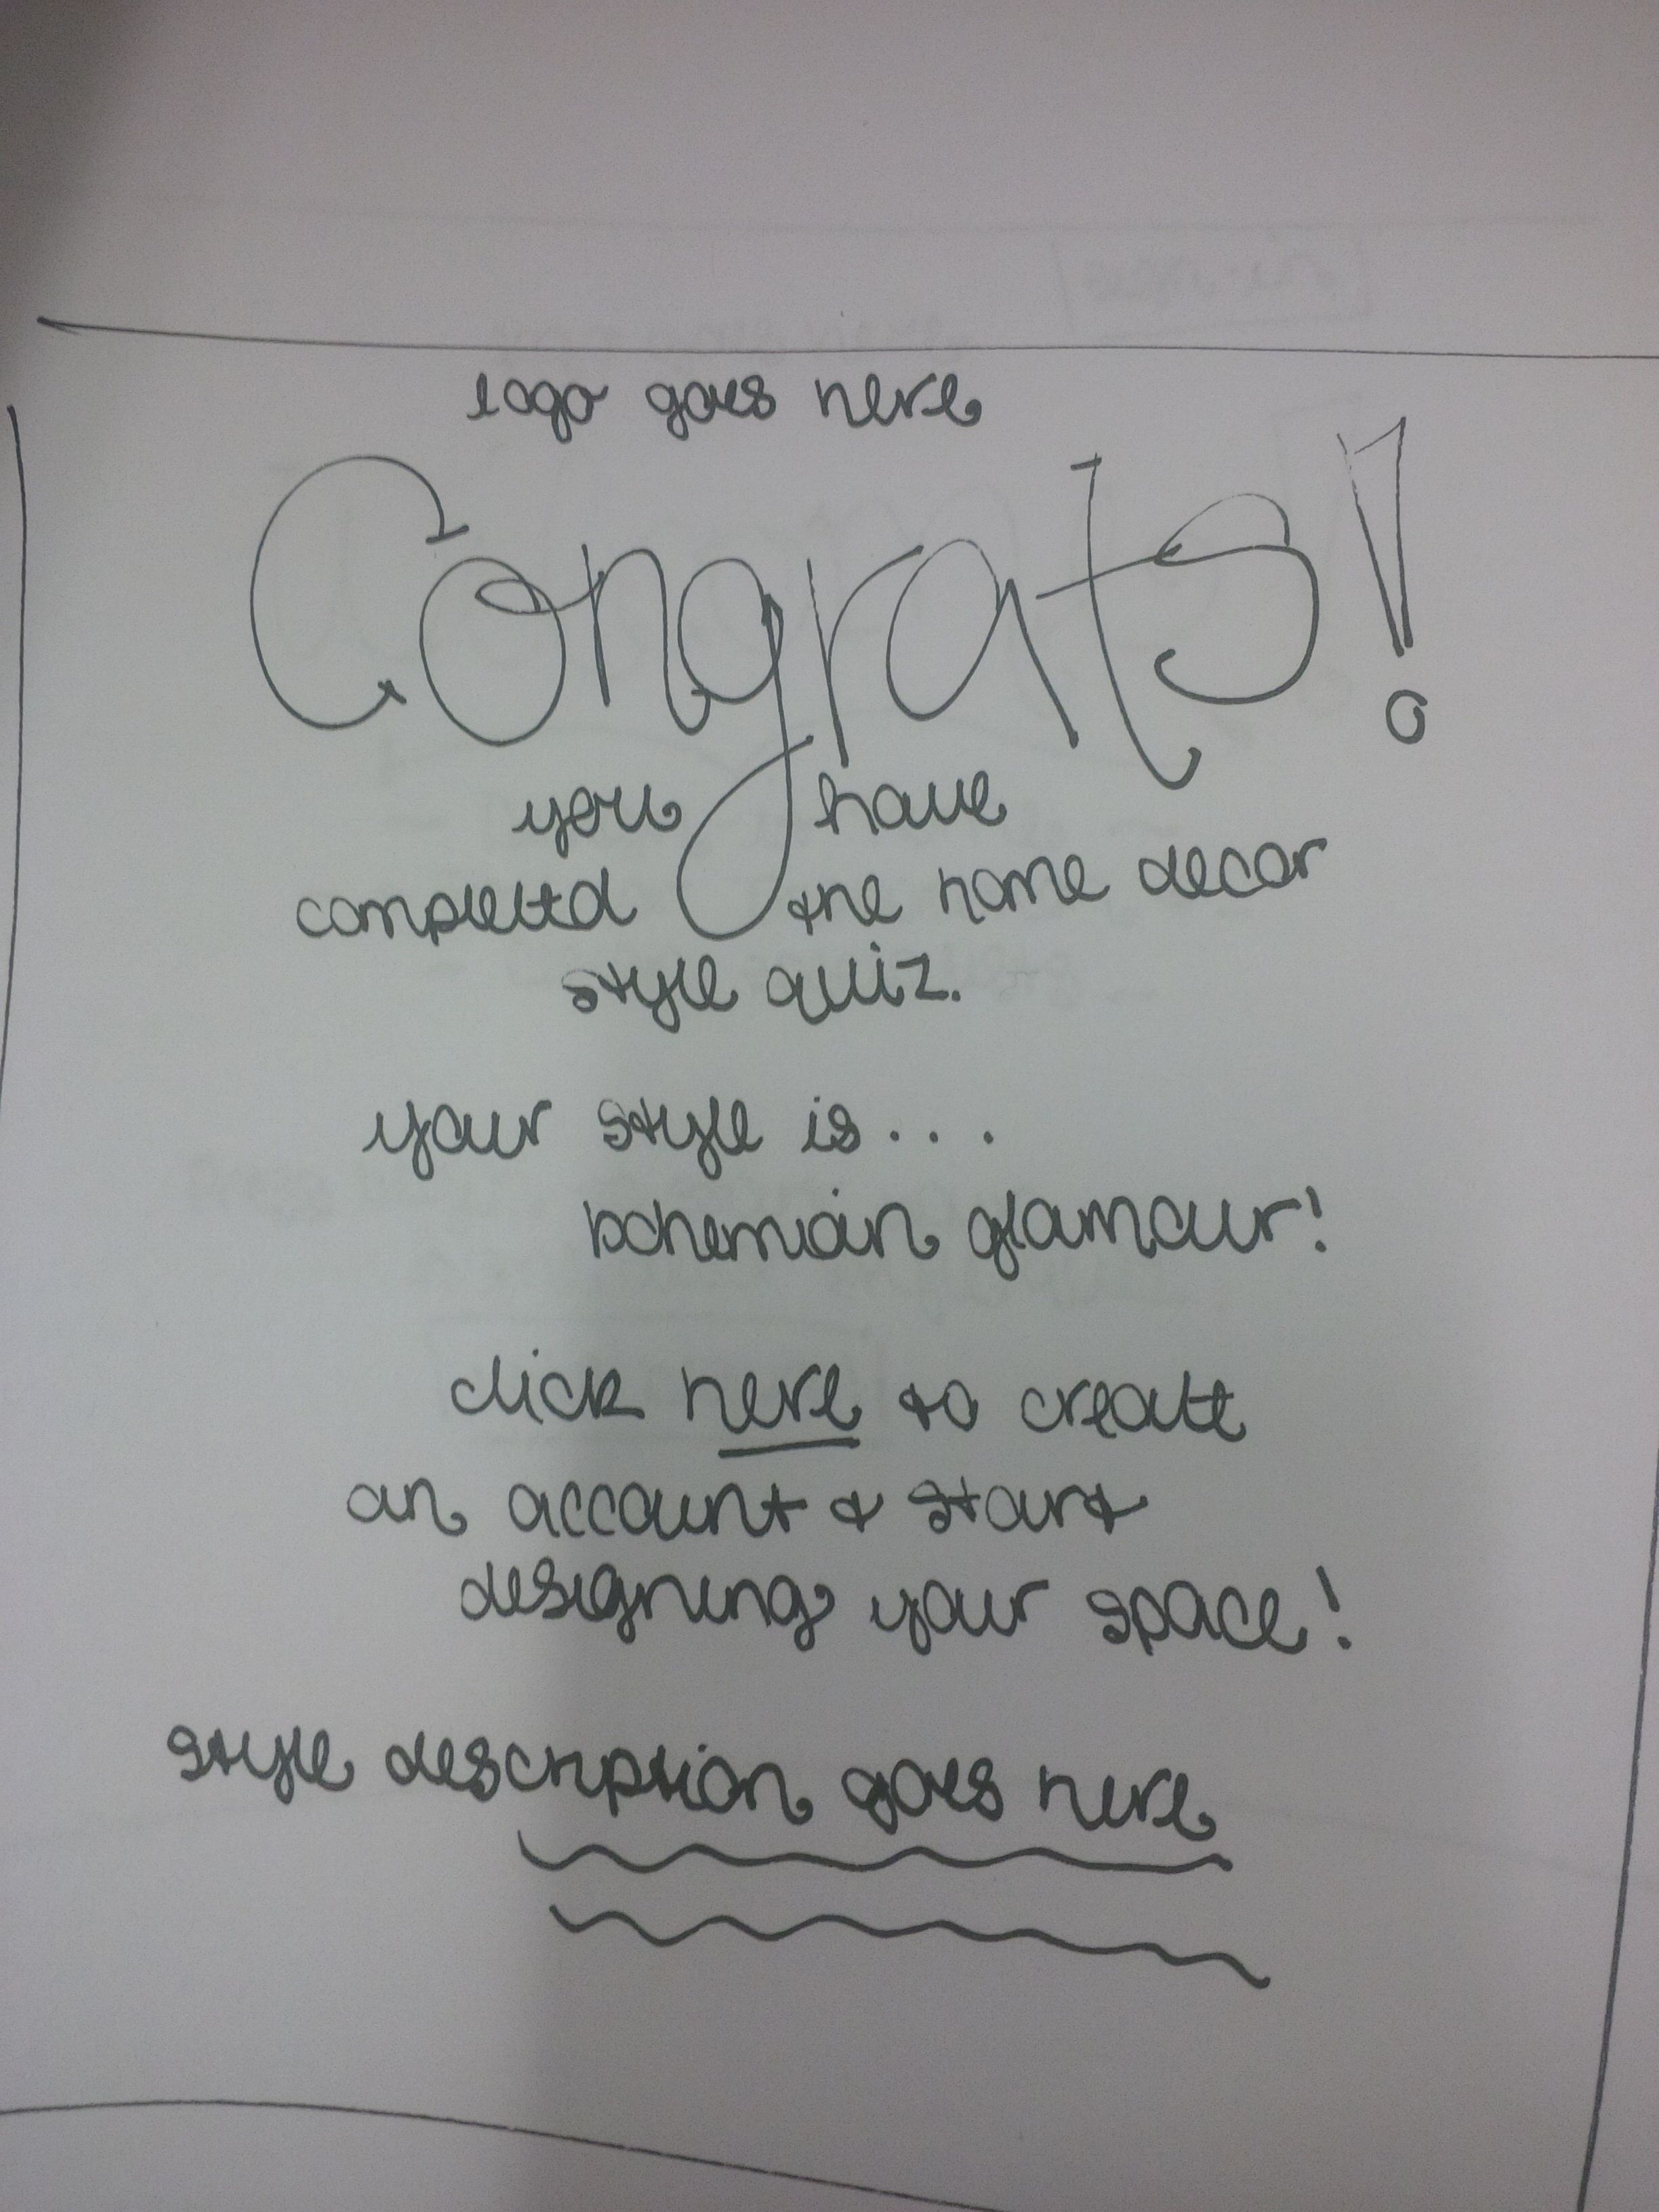 logo goes here
Congrats!
you have
completed the home decor
style quiz.
your style is...
bohemian glamour!
click here to create
an account & start
designing your space!
style description goes here